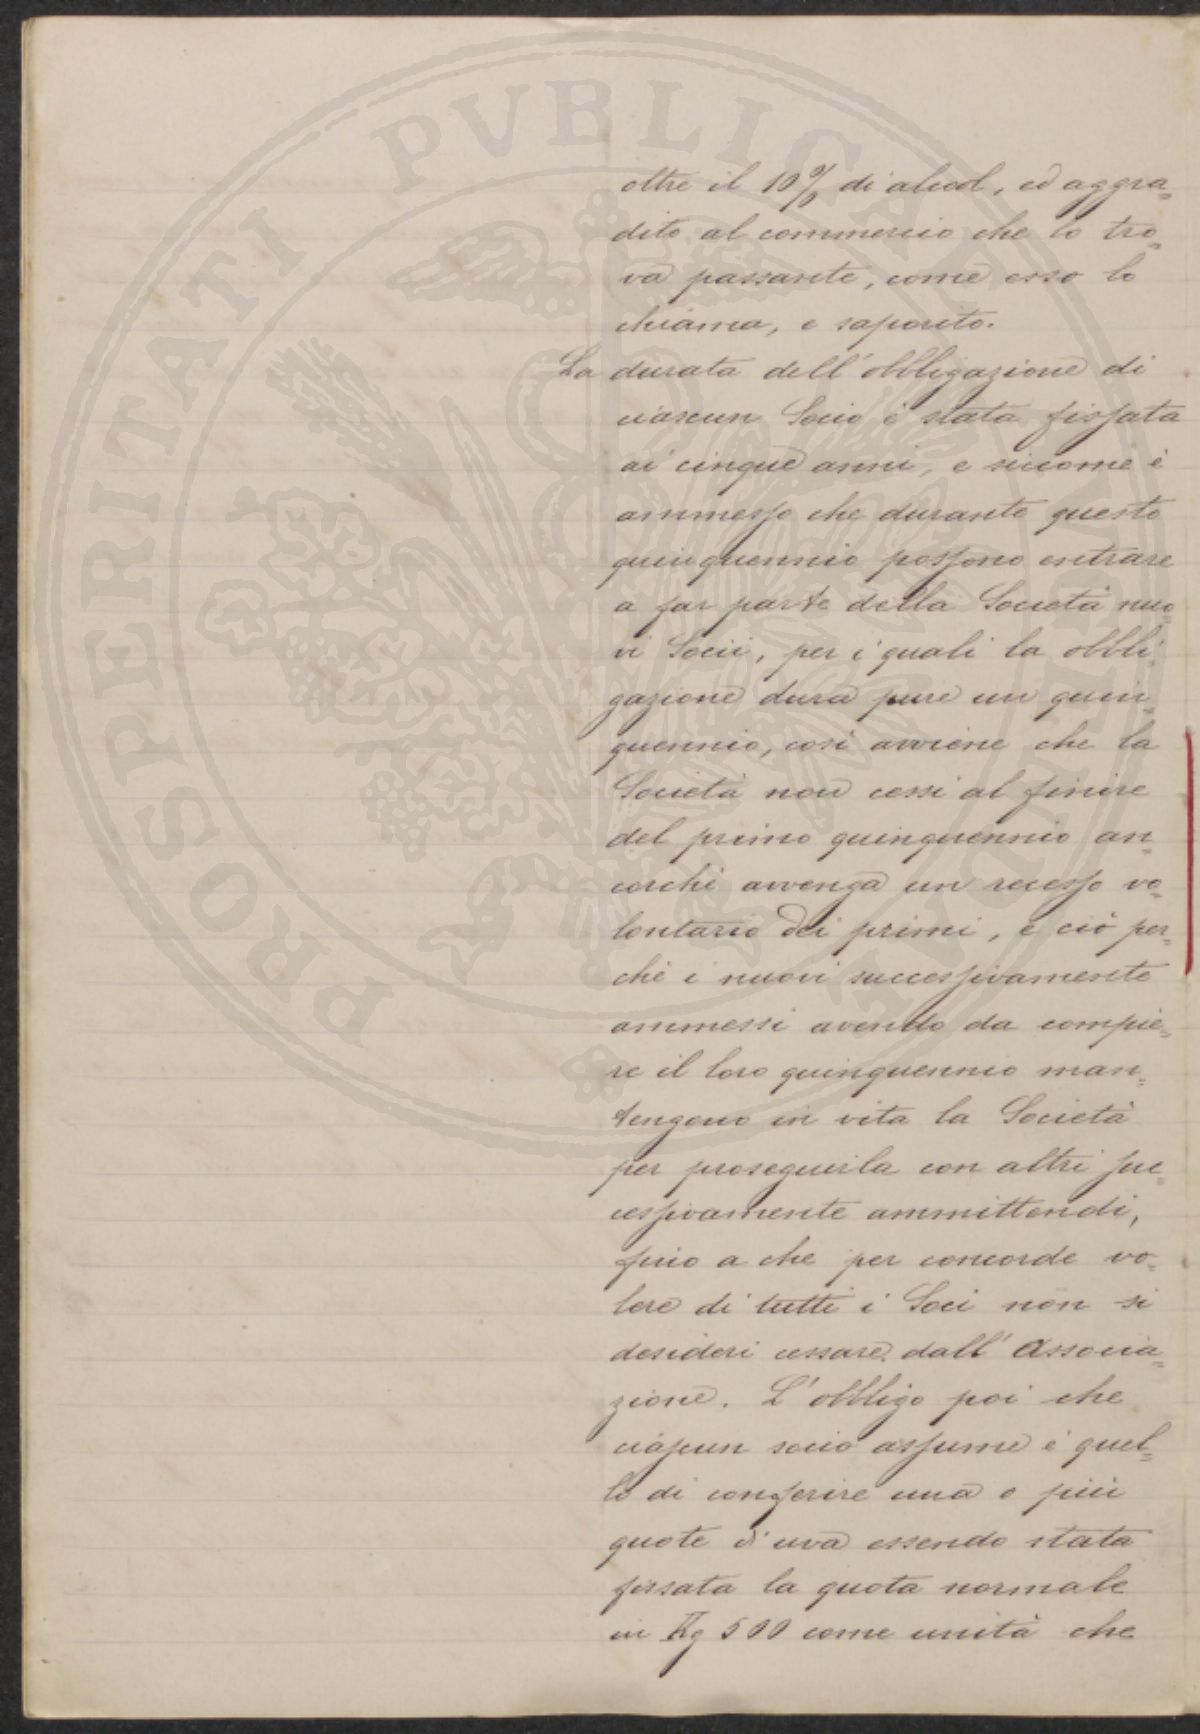 PROSPERITATI PUBLICAE AUGENDAE
oltre il 10% di alcool, ed aggra=
dito al commercio che lo tro=
va passante, come esso lo
chiama, e saporito.
La durata dell'obbligazione di
ciascun Socio è stata fissata
ai cinque anni, e siccome è
ammesso che durante questo
quinquennio possono entrare
a far parte della Società nuo
vi Socii, per i quali la obbli=
gazione dura pure un quin=
quennio, così avviene che la
Società non cessi al finire
del primo quinquennio an=
corchè avvenga un recesso vo=
lontario dei primi, e ciò per=
chè i nuovi successivamente
ammessi avendo da compie=
re il loro quinquennio man=
tengono in vita la Società
per proseguirla con altri suc=
cessivamente ammittendi,
fino a che per concorde vo=
lere di tutti i Soci non si
desideri cessare dall'Associa=
zione. L'obbligo poi che
ciascun socio assume è quel=
lo di conferire una o più
quote d'uva essendo stata
fissata la quota normale
in Kg 500 come unità che